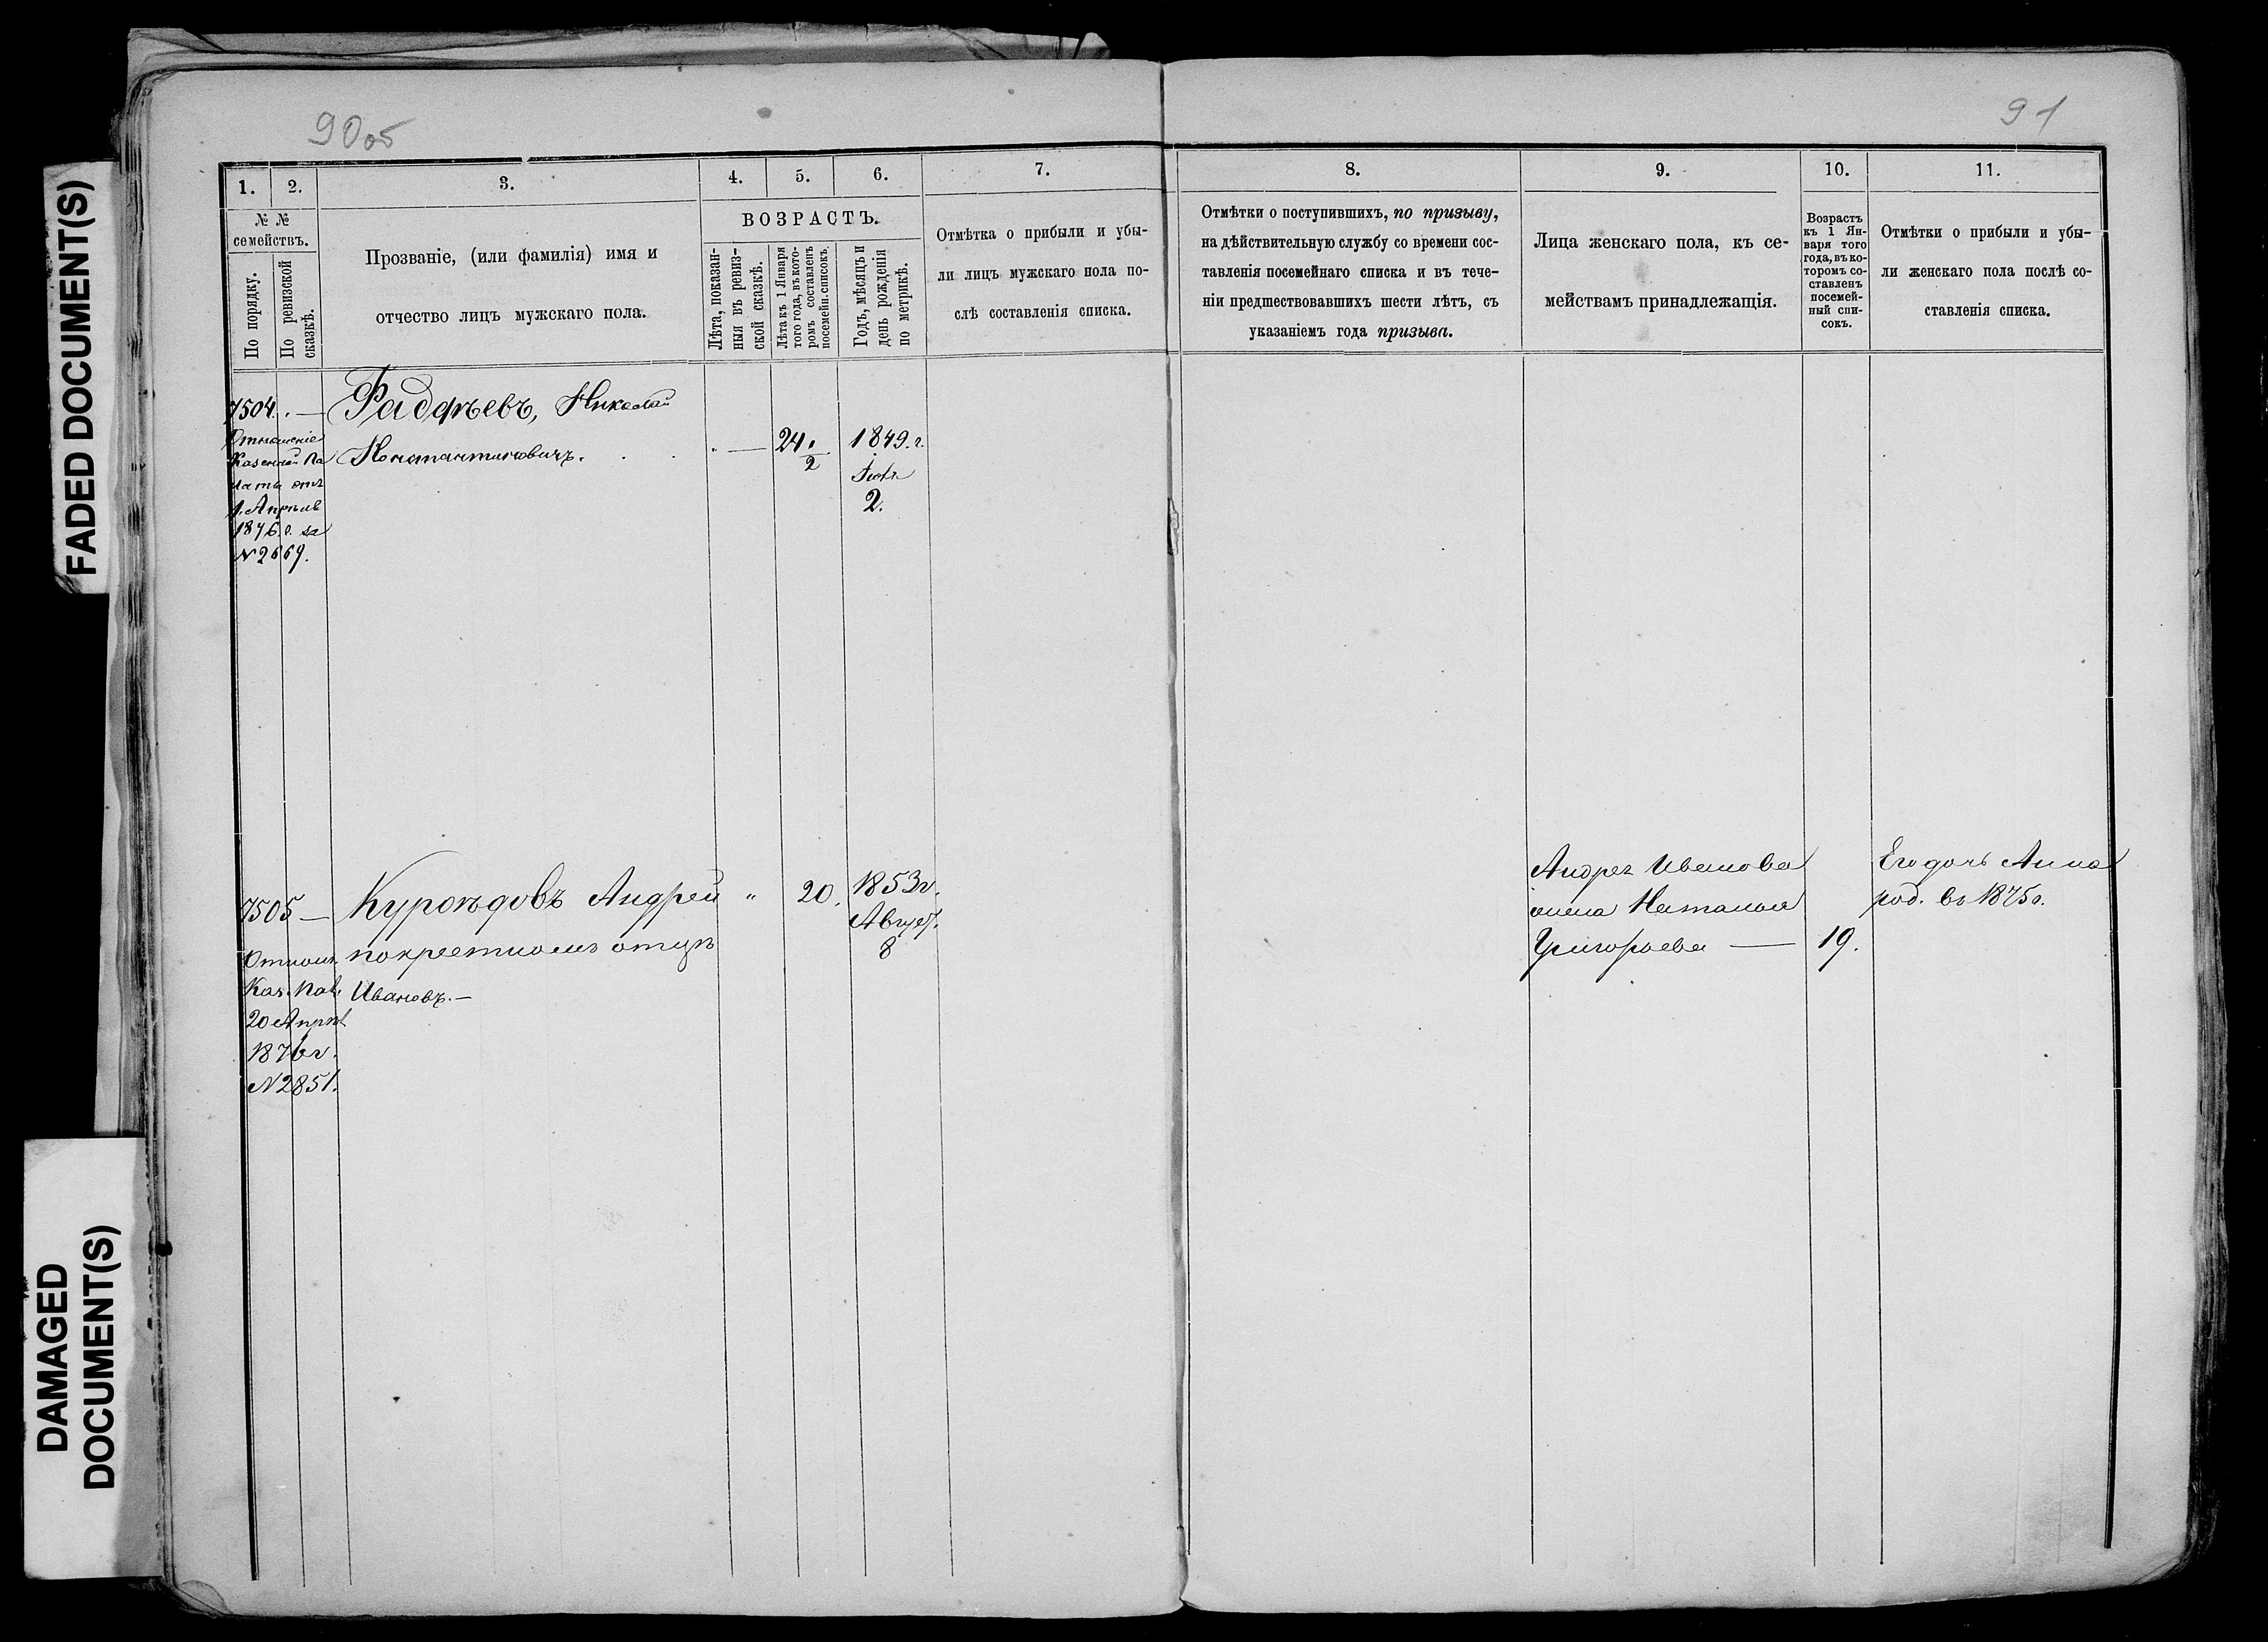 FADED DOCUMENT(S)
DAMAGED
DOCUMENT(S)
90об
91
1.
2.
3.
4.
5.
6.
7.
8.
9.
10.
11.
№ №
семействъ.
По порядку.
По ревизской
сказкѣ.
Прозваніе, (или фамилія) имя и
отчество лицъ мужскаго пола.
ВОЗРАСТЪ.
Лѣта, показан-
ныя въ ревиз-
ской сказкѣ.
Лѣта къ 1 Января
того года, въ кото-
ромъ составленъ
посемейн. списокъ.
Годъ, мѣсяцъ и
день рожденія
по метрикѣ.
Отмѣтка о прибыли и убы-
ли лицъ мужскаго пола по-
слѣ составленія списка.
Отмѣтки о поступившихъ, по призыву,
на дѣйствительную службу со времени сос-
тавленія посемейнаго списка и въ тече-
ніи предшествовавшихъ шести лѣтъ, съ
указаніемъ года призыва.
Лица женскаго пола, къ се-
мействамъ принадлежащія.
Возрастъ
къ 1 Ян-
варя того
года, въ ко-
торомъ со-
ставленъ
посемей-
ный спи-
сокъ.
Отмѣтки о прибыли и убы-
ли женскаго пола послѣ со-
ставленія списка.
7504. —
Отношеніе
Казенной Па
латы отъ
1. Апрѣля
1876 г. за
N 2669.
Фаддѣевъ, Николай
Константиновичъ.
—
24 1/2
1849. г.
2.
7505 —
Отнош.
Каз. Пал.
20 Апрѣл
1876 г.
N 2851.
Куроѣдовъ Андрей
по крестномъ отцѣ
Ивановъ. —
"
20.
1853 г.
Август.
8
Андрея Иванова
жена Наталья
Григорьева —
19.
Его дочь Анна
род. въ 1875 г.